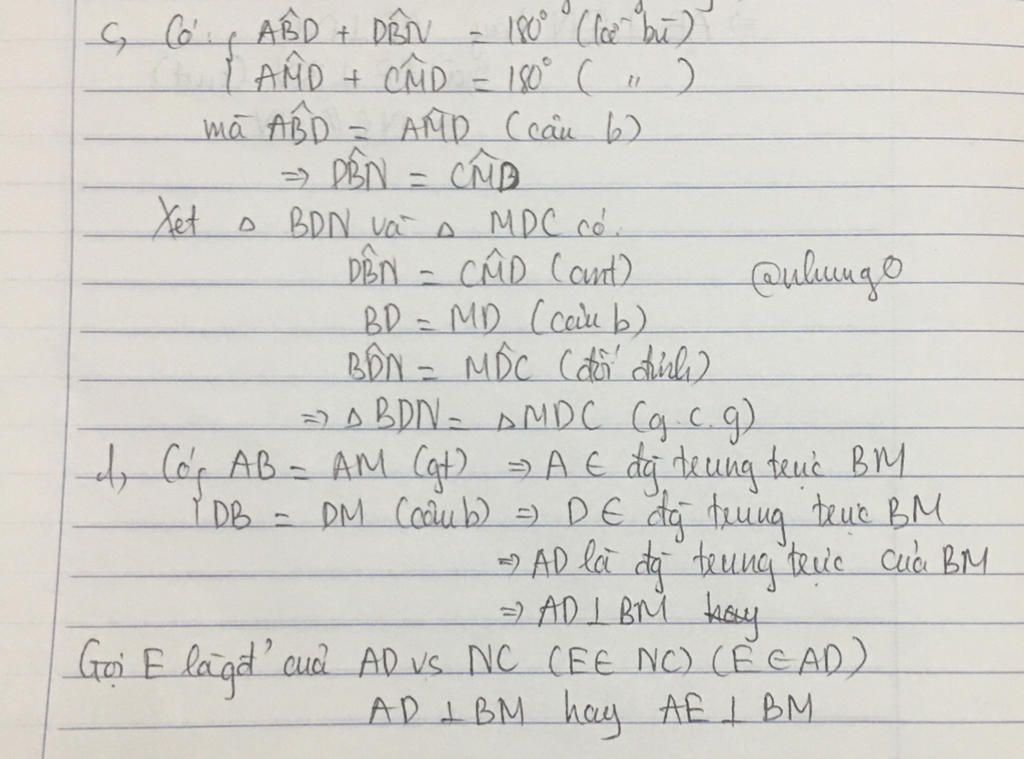 c, Có: { AB̂D + DB̂N = 180° (kề bù)
AM̂D + CM̂D = 180° ( " )
mà AB̂D = AM̂D (câu b)
⇒ DB̂N = CM̂D
Xét △ BDN và △ MDC có:
DB̂N = CM̂D (cmt)
@nhung0
BD = MD (câu b)
BD̂N = MD̂C (đối đỉnh)
⇒ △ BDN = △ MDC (g.c.g)
d, Có { AB = AM (gt) ⇒ A ∈ đg trung trực BM
DB = DM (câu b) ⇒ D ∈ đg trung trực BM
⇒ AD là đg trung trực của BM
⇒ AD ⊥ BM hay
Gọi E là gđ' của AD vs NC (E ∈ NC) (E ∈ AD)
AD ⊥ BM hay AE ⊥ BM